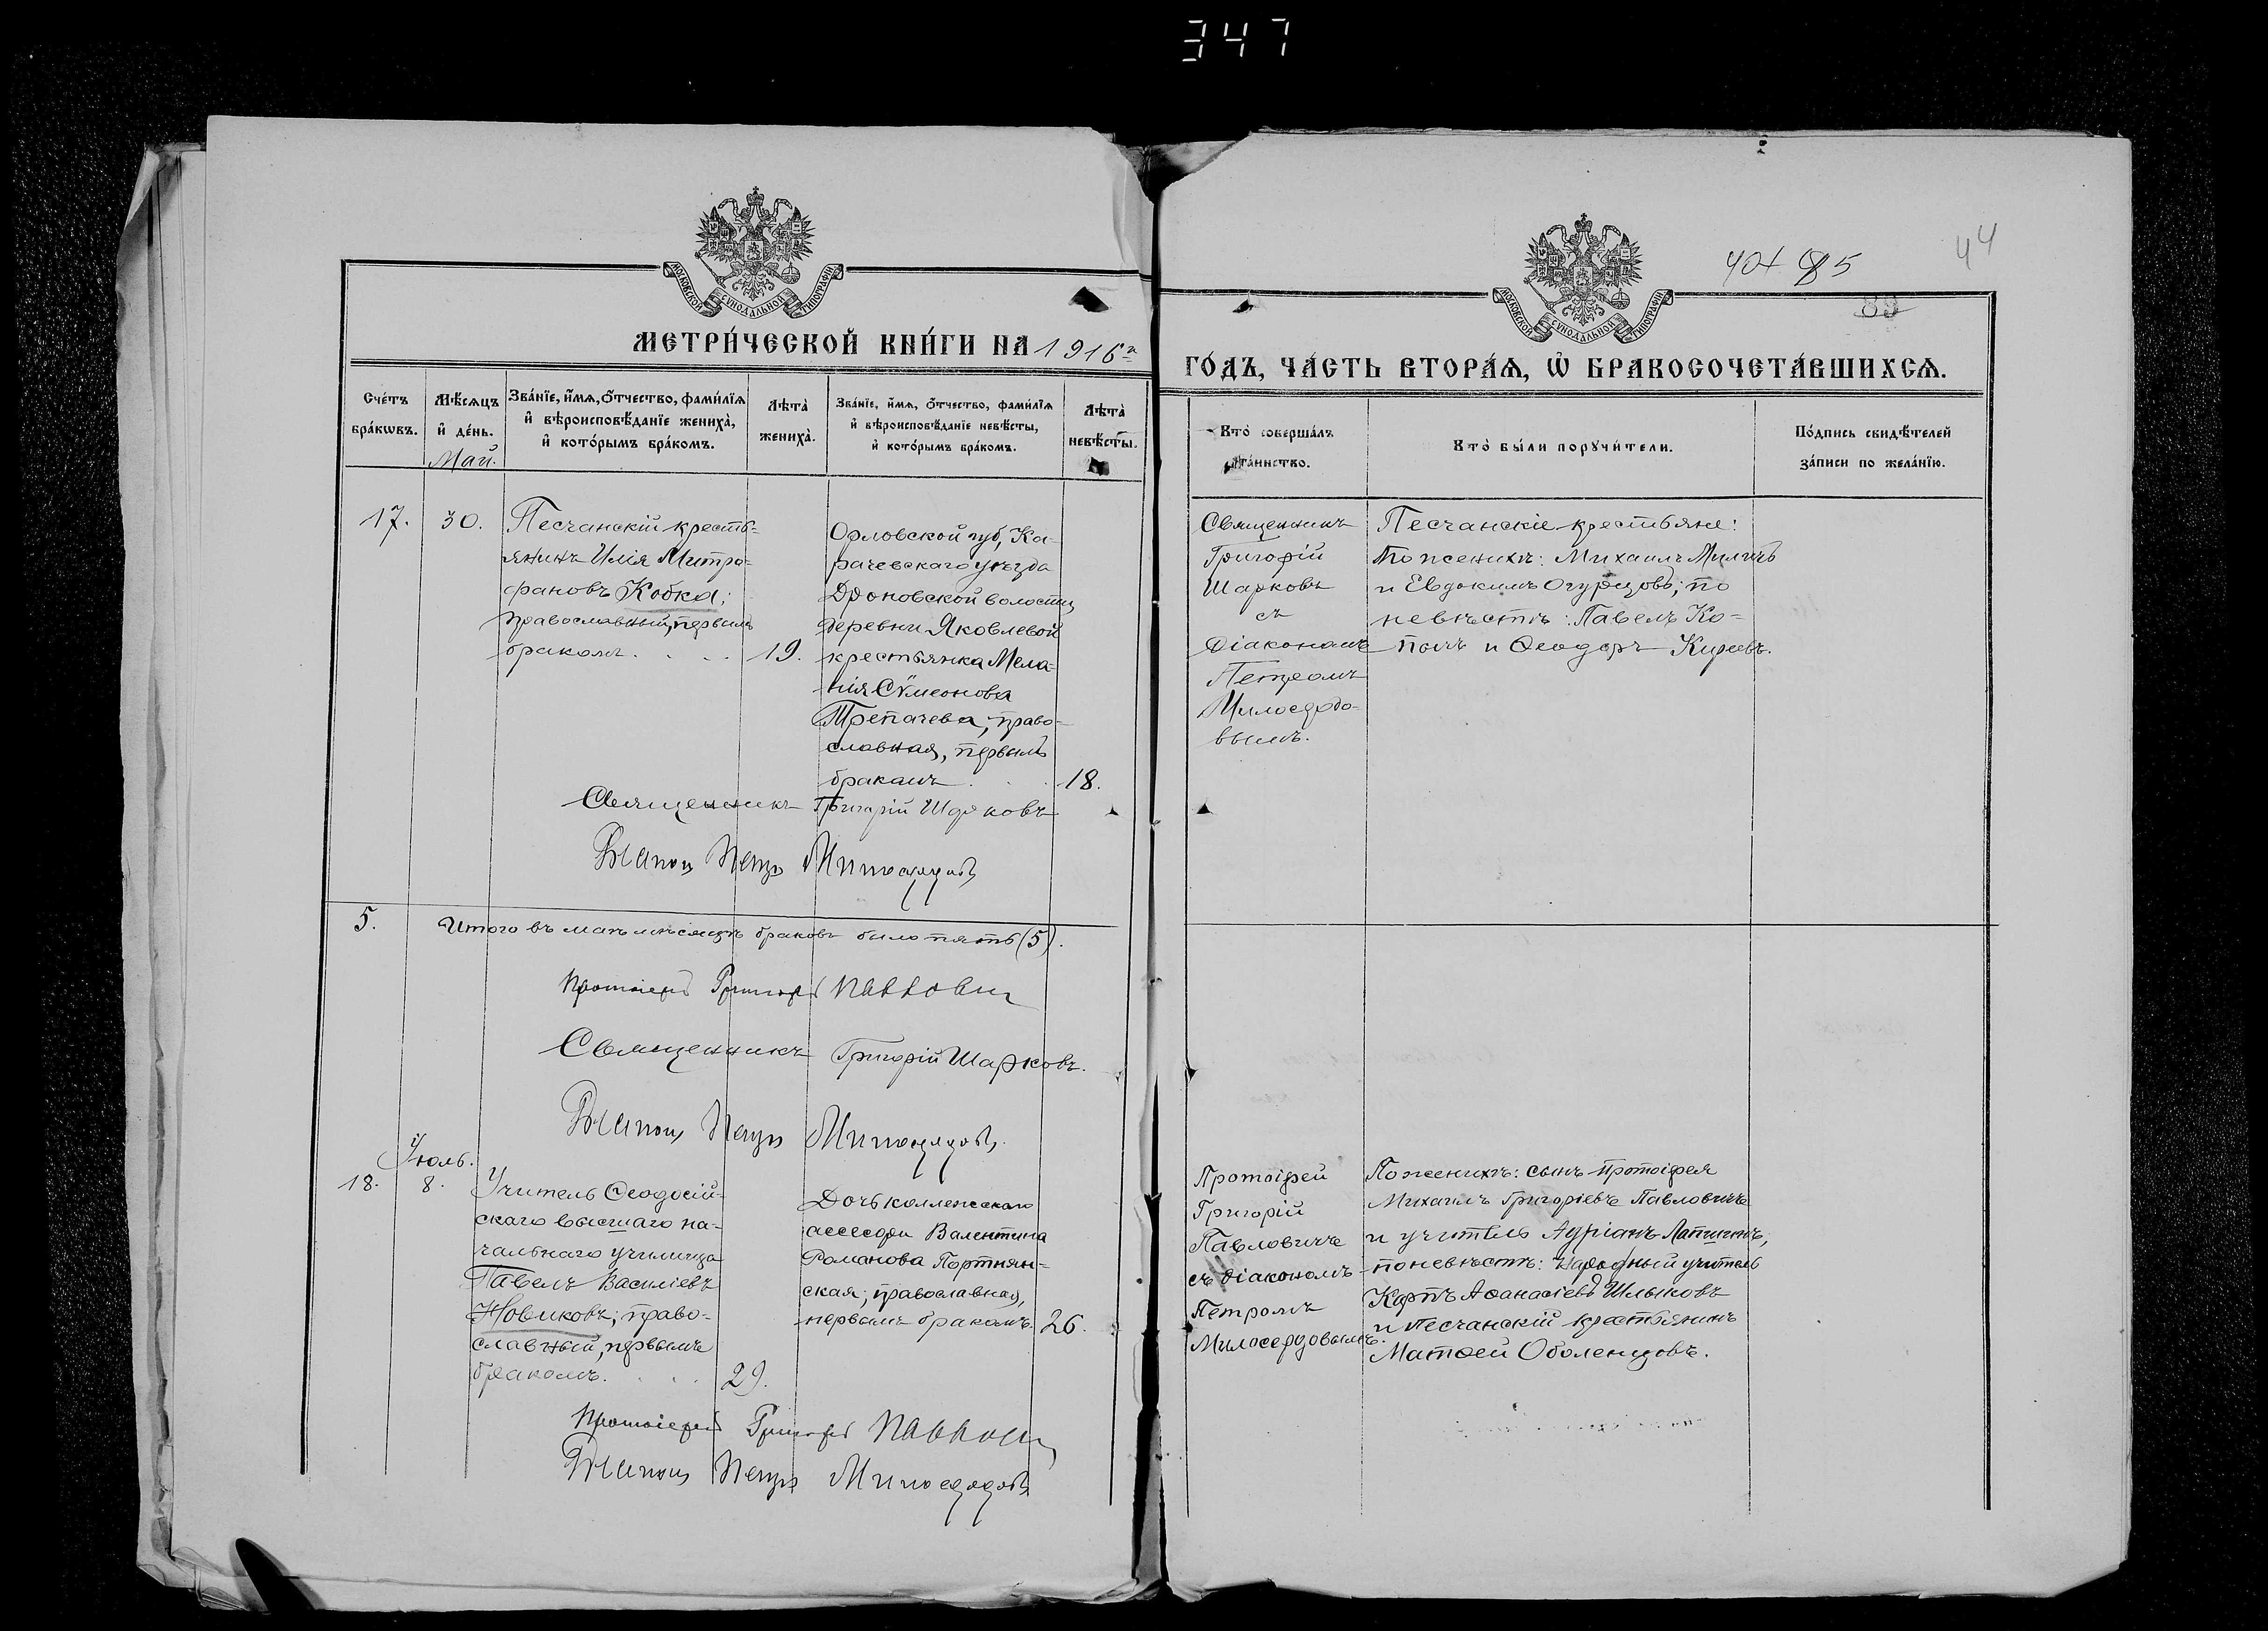 347
МОСКОВСКОЙ СѴНОДАЛЬНОЙ ТИПОГРАФІИ
МЕТРИ́ЧЕСКОЙ КНИ́ГИ НА 1916 г.
Сче́тъ бра́кωвъ.
Мѣ́сяцъ и҆ де́нь.
Май.
Зва́нїе, и҆́мѧ, ѻ҆́тчество, фами́лїѧ и҆ вѣроисповѣ́данїе жениха̀, и҆ кото́рымъ бра́комъ.
Лѣта̀ жениха̀.
Зва́нїе, и҆́мѧ, ѻ҆́тчество, фами́лїѧ и҆ вѣроисповѣ́данїе невѣ́сты, и҆ кото́рымъ бра́комъ.
Лѣта̀ невѣ́сты.
17.
30.
Песчанскій кресть-
янинъ Илія Митро-
фановъ Кобка;
православный, первымъ
бракомъ. . . . 19.
Орловской губ, Ка-
рачевскаго уѣзда
Дроновской волости,
деревни Яковлевой
крестьянка Мела-
нія Сѵмеонова
Трепачева, право-
славная, первымъ
бракомъ . . . 18.
Священникъ Григорій Шарковъ
Діаконъ Петръ Милосердовъ
5.
Итого въ маѣ мѣсяцѣ браковъ было пять (5).
Протоіерей Григорій Павловичъ
Священникъ Григорій Шарковъ.
Діаконъ Петръ Милосердовъ.
Іюль.
18.
8.
Учитель Ѳеодосій-
скаго высшаго на-
чальнаго училища
Павелъ Василіевъ
Новиковъ; право-
славный, первымъ
бракомъ. . . . 29.
Дочь коллежскаго
ассесора Валентина
Романова Портнян-
ская; православная,
первымъ бракомъ. 26.
Протоіерей Григорій Павловичъ
Діаконъ Петръ Милосердовъ
44
85
89
МОСКОВСКОЙ СѴНОДАЛЬНОЙ ТИПОГРАФІИ
ГО́ДЪ, ЧА́СТЬ ВТОРА́Ѧ, Ѡ҆ БРАКОСОЧЕТА́ВШИХСѦ.
Кто̀ соверша́лъ та́инство.
Кто̀ бы́ли порꙋчи́тели.
По́дпись свидѣ́телей за́писи по жела́нїю.
Священникъ
Григорій
Шарковъ
съ
діакономъ
Петромъ
Милосердо-
вымъ.
Песчанскіе крестьяне:
По женихѣ: Михаилъ
и Евдокимъ Огурцовъ; по
невѣстѣ: Павелъ Ко-
и Ѳеодоръ Киреевъ.
Протоіерей
Григорій
Павловичъ
съ діакономъ
Петромъ
Милосердовымъ.
По женихѣ: сынъ протоіерея
Михаилъ Григоріевъ Павловичъ
и учитель Адріанъ Лапшинъ;
по невѣстѣ: народный учитель
Карпъ Аѳанасіевъ Шлыковъ
и песчанскій крестьянинъ
Матѳей Оболенцовъ.